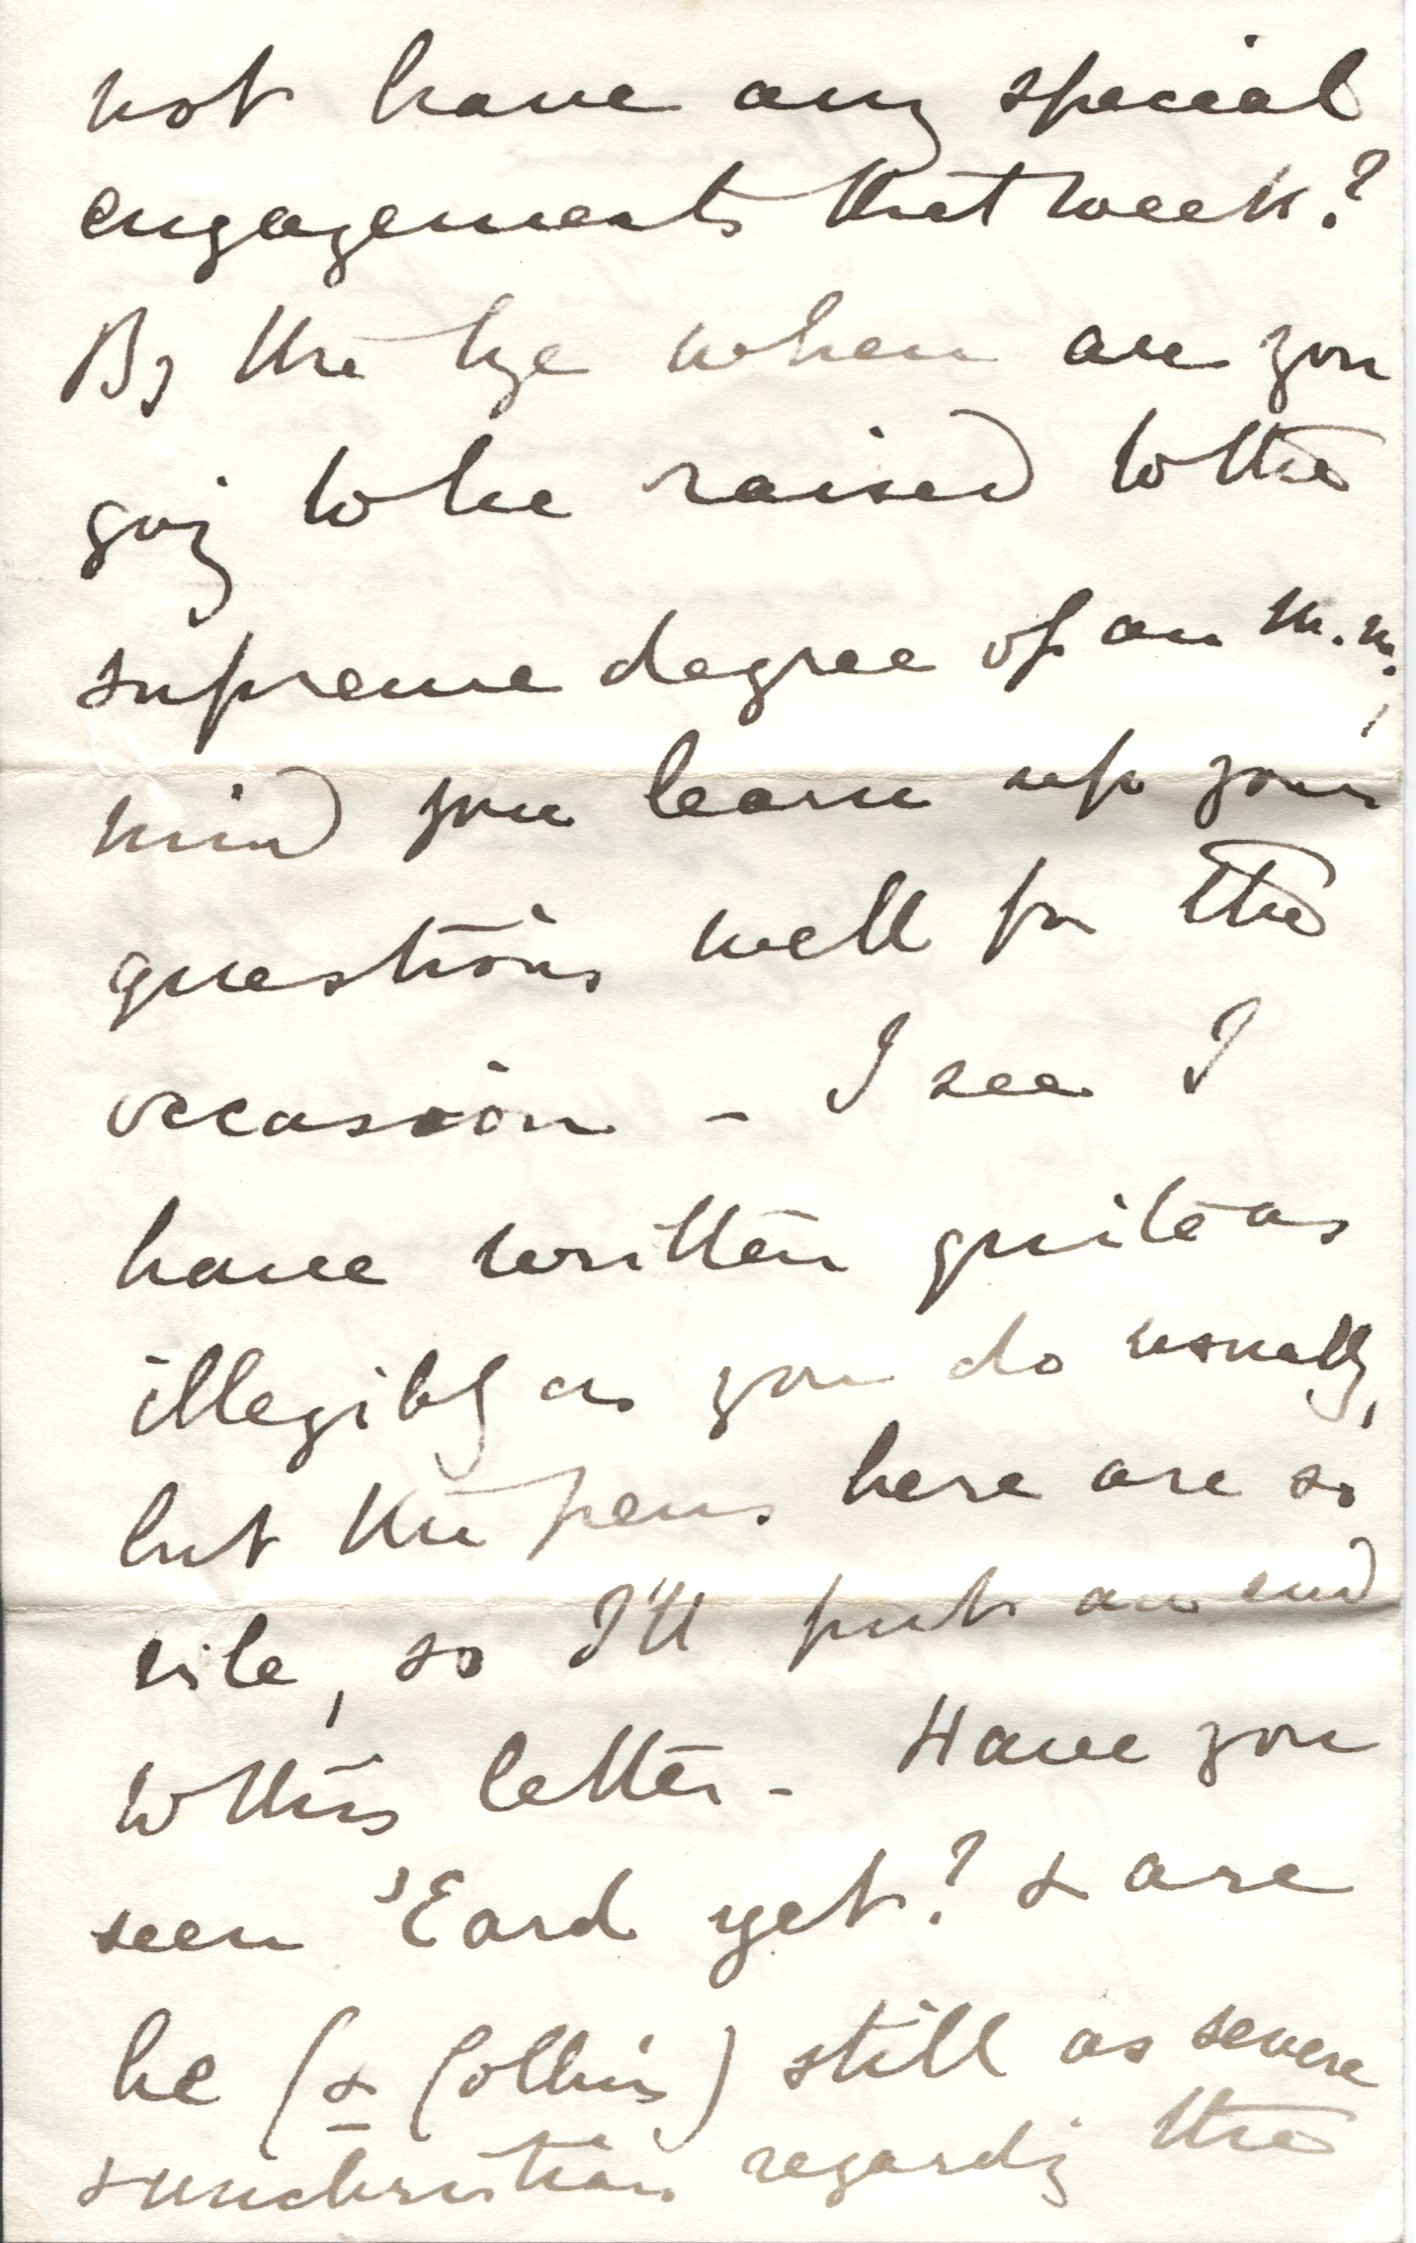 not have any special
engagements that week?
By the bye when are you
going to be raised to the
supreme degree of an M.M.,
mind you learn up your
questions well for the
occasion - I see I
have written quite as
illegibly as you do usually,
but the pens here are so
vile, so I'll put an end
to this letter - Have you
seen 'Eard yet? & are
he (& Collins) still as severe
& unchristian regarding the